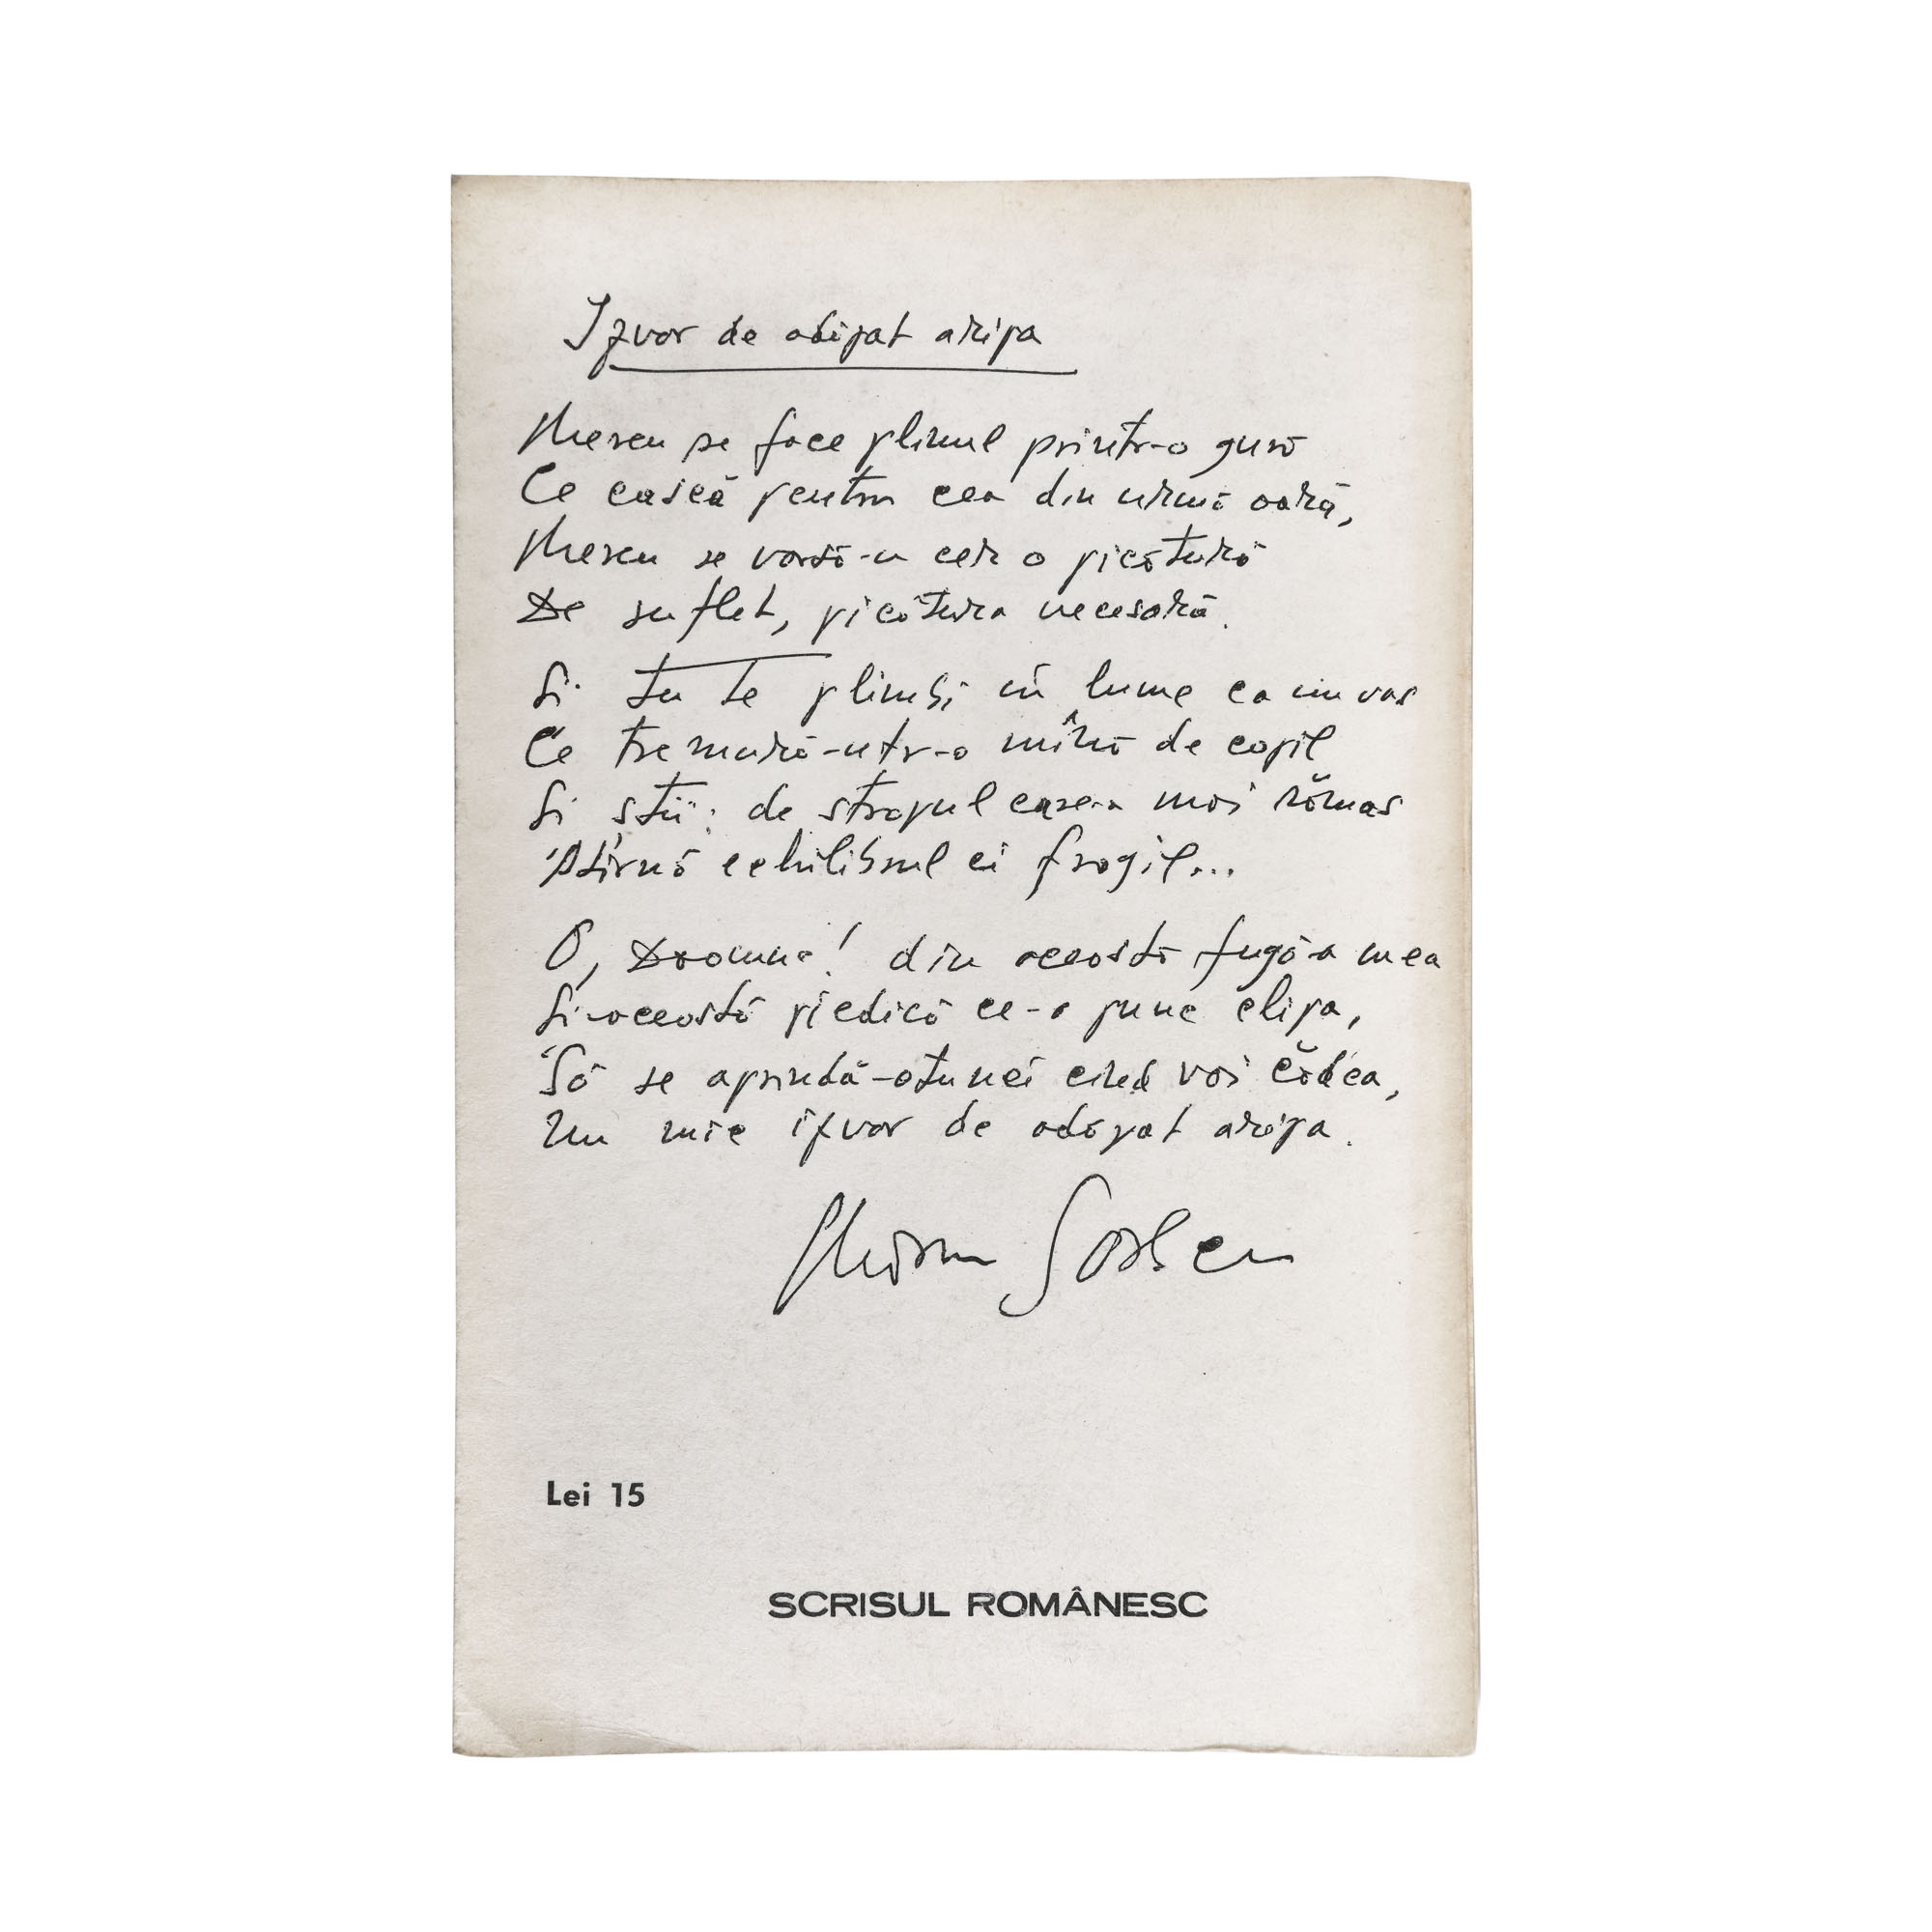 Izvor de adăpat aripa
Mereu se face plinul printr-o gură
Ce cască pentru cea din urmă oară,
Mereu se varsă-n cer o picătură
De suflet, picătura necesară.
Și tu te plimbi în lume ca un vas
Ce tremură-ntr-o mînă de copil
Și știi: de stropul care-a mai rămas
Atîrnă echilibrul ei fragil...
O, Doamne! din această fugă-a mea
Și-această piedică ce-o pune clipa,
Să se aprindă-atunci cînd voi cădea,
Un mic izvor de adăpat aripa.
Marin Sorescu
Lei 15
SCRISUL ROMÂNESC